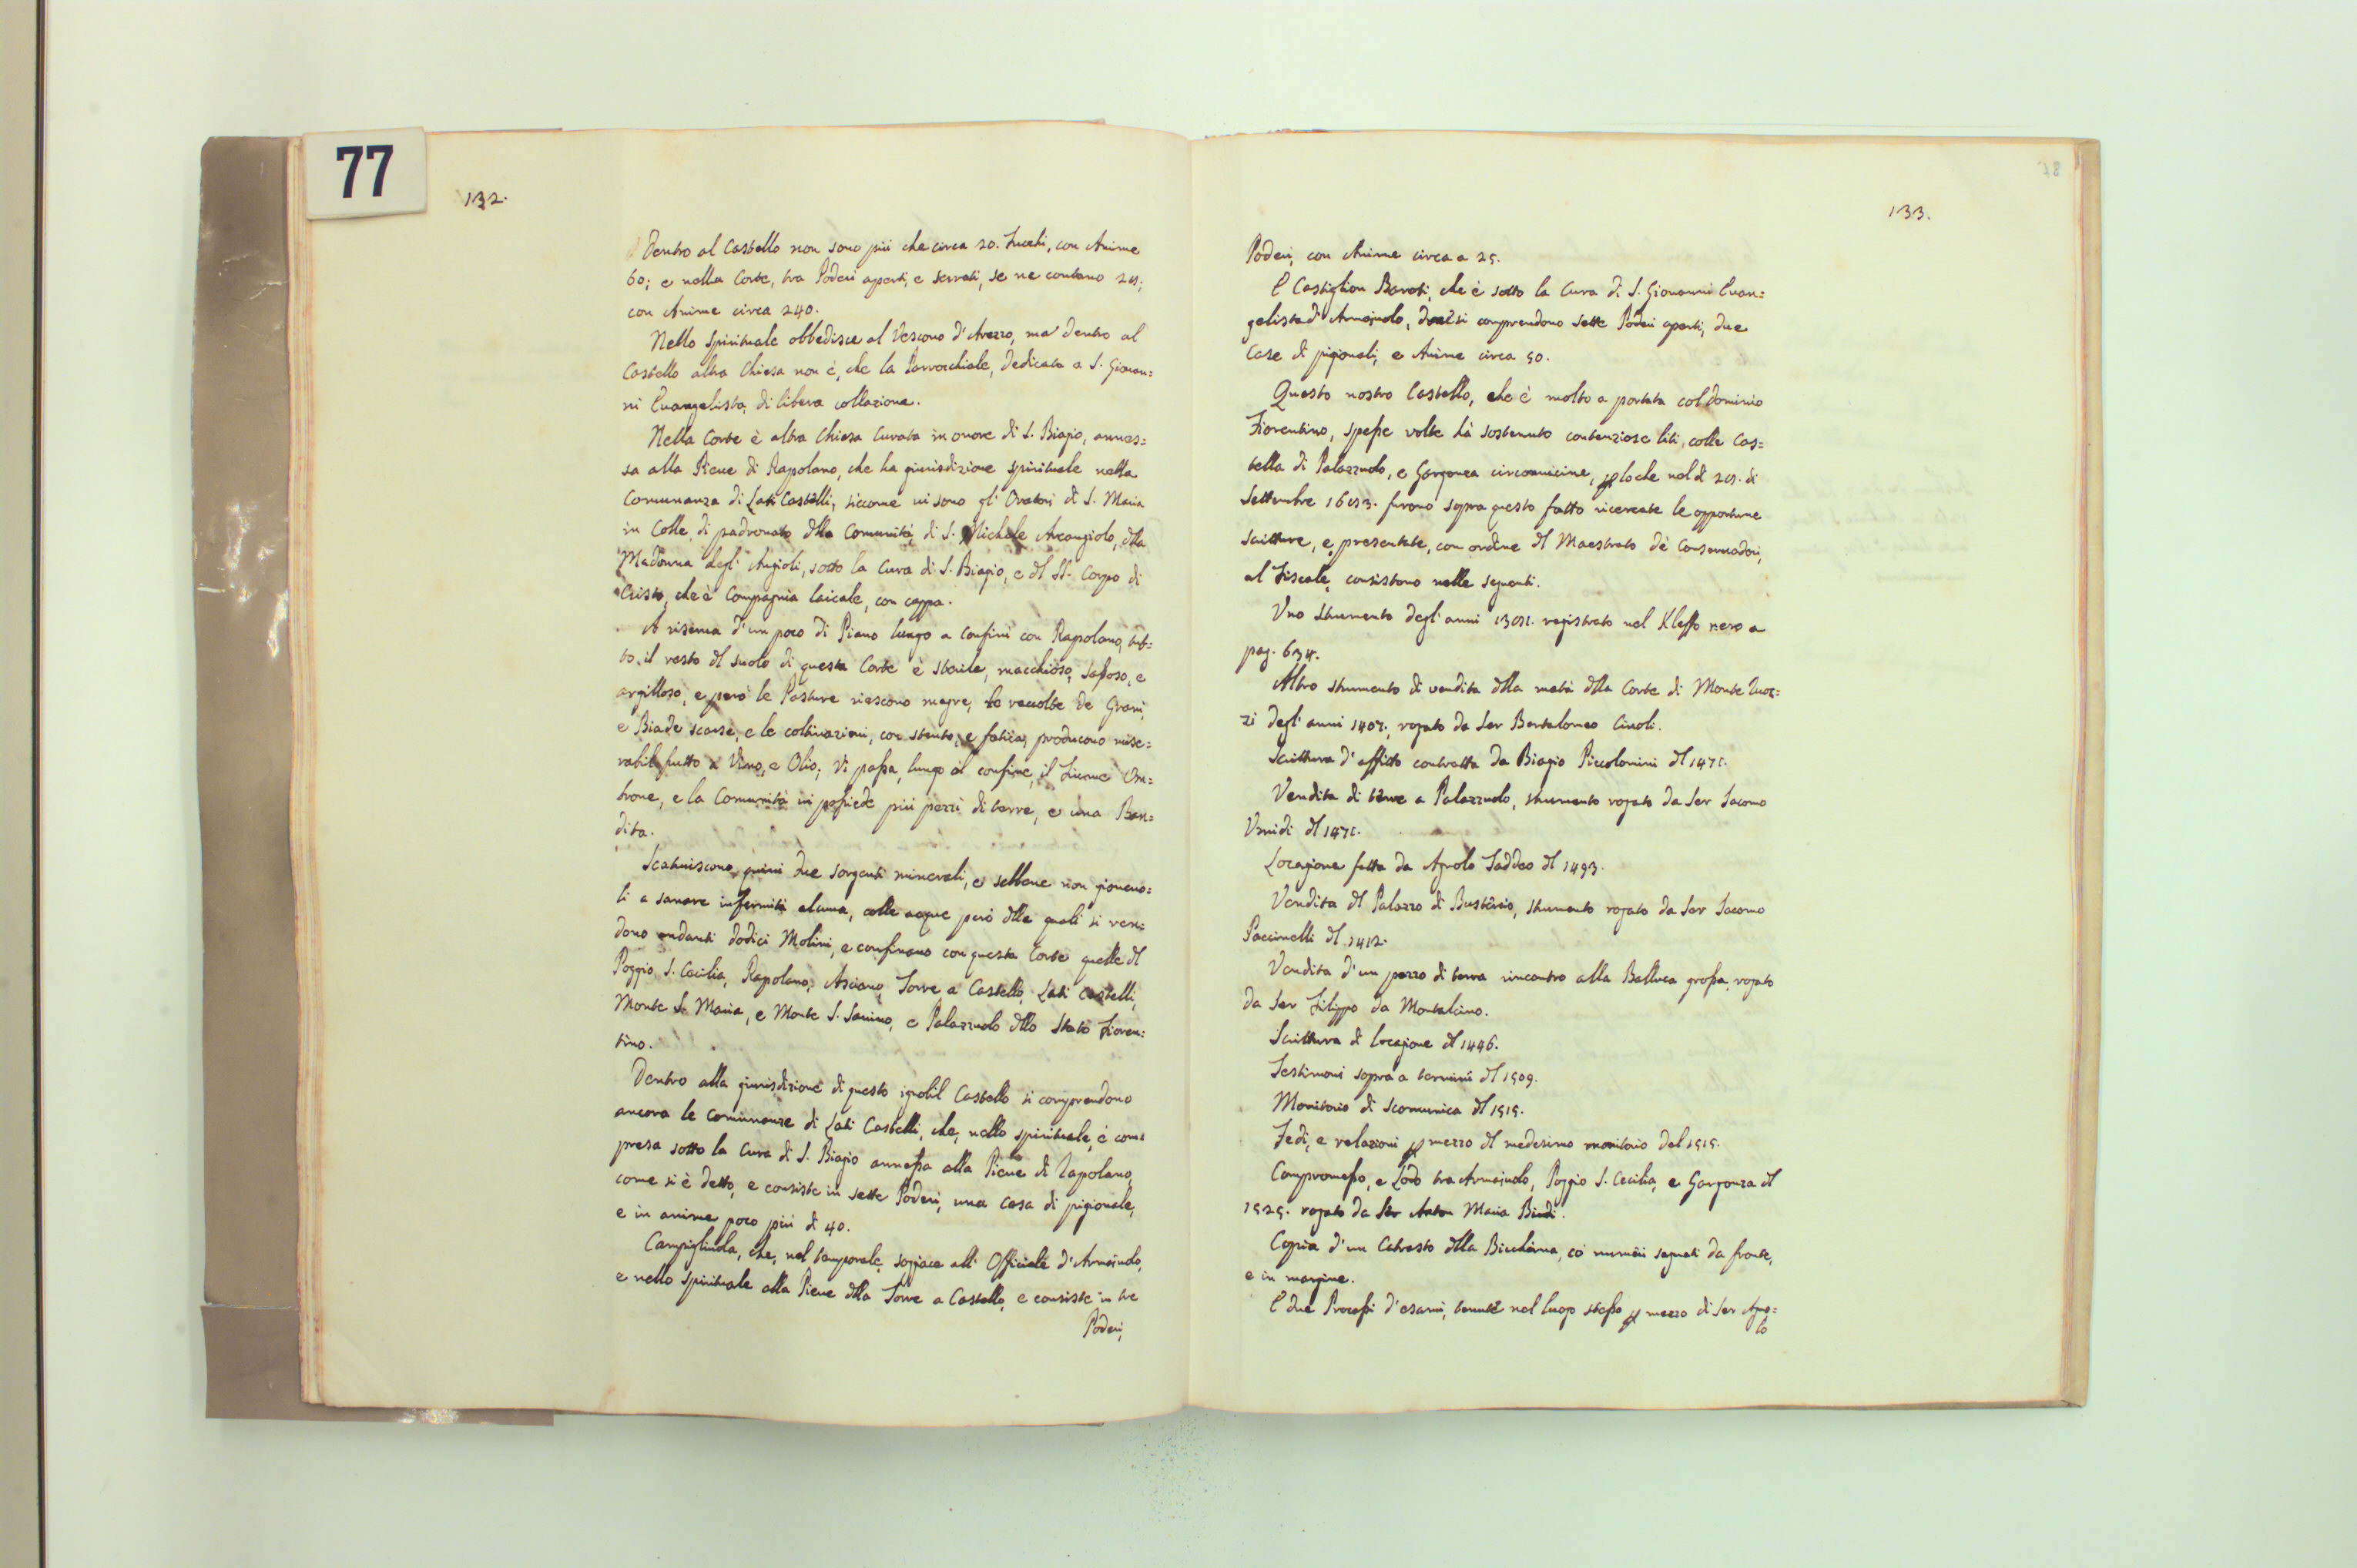 77
132.
Dentro al Castello non sono più che circa 20. Fuochi, con Anime
60; e nella Corte, tra Poderi aperti, e serrati, se ne contano
con Anime circa 240.
Nello spirituale obbedisce al Vescovo d'Arezzo, ma dentro al
Castello altra Chiesa non è, che la Parrochiale, dedicata a S. Giovan=
ni Evangelista, di libera collazione.
Nella Corte è altra Chiesa Curata in onore di S. Biagio, annes=
sa alla Pieve di Rapolano, che ha giurisdizione spirituale nella
Comunanza di Lati Castelli, siccome vi sono gl'Oratori di S. Maria
in Colle, di padronato dlla Comunità, di S. Michele Arcangiolo, dlla
Madonna degl'Angioli, sotto la Cura di S. Biagio, e dl SS. Corpo di
Cristo, che è Compagnia laicale, con cappa.
A riserva d'un poco di Piano lungo a confini con Rapolano, tut=
to il resto dl suolo di questa Corte è sterile, macchioso, sassoso, e
argilloso, e però le Pasture riescono magre, le raccolte de Grani,
e Biade scarse, e le coltivazioni, con stento, e fatica, producono mise=
rabil frutto a Vino, e Olio; Vi passa, lungo il confine, il Fiume Om=
brone, e la Comunità vi possiede più pezzi di terre, e una Ban=
dita.
Scaturiscono quivi due sorgenti minerali, e sebbene non giovevo=
li a sanare infermità alcuna, colle acque però dlle quali si ren=
dono andanti dodici Molini, e confinano con questa Corte quelle dl
Poggio S. Cecilia, Rapolano, Asciano, Torre a Castello, Lati Castelli,
Monte S. Maria, e Monte S. Savino, e Palazzuolo dllo Stato Fioren=
tino.
Dentro alla giurisdizione di questo ignobil Castello si comprendono
ancora le Comunanze di Lati Castelli, che, nello spirituale, è com=
presa sotto la Cura di S. Biagio annessa alla Pieve di Rapolano,
come si è detto, e consiste in sette Poderi, una casa di pigionale,
e in anime poco più di 40.
Campigliuola, che, nel temporale, soggiace all'Officiale d'Armaiuolo,
e nello spirituale alla Pieve dlla Torre a Castello, e consiste in tre
Poderi,
78
133.
Poderi, con Anime circa a 25.
E Castiglion Baroti, che è sotto la Cura di S. Giovanni Evan=
gelista d'Armaiuolo, si comprendono sette Poderi aperti, due
Case di pigionali, e Anime circa 50.
Questo nostro Castello, che è molto a portata col dominio
Fiorentino, spesse volte hà sostenuto contenziose liti, colle Cas=
tella di Palazzuolo, e Gargonza circonvicine, p lo che nel dì di
Settembre furono sopra questo fatto ricercate le opportune
scritture, e, presentate, con ordine dl Maestrato de Conservadori,
al Fiscale, consistono nelle seguenti.
Uno strumento degl'anni registrato nel Kleffo nero a
pag. 634.
Altro strumento di vendita dlla metà dlla Corte di Monte
zi degl'anni rogato da Ser Bartolomeo
Scrittura d'affitto contratta da Biagio Piccolomini dl
Vendita di terre a Palazzuolo, strumento rogato da Ser Iacomo
dl
Locagione fatta da Agnolo Taddeo dl 1493.
Vendita dl Palazzo di strumento rogato da Ser Iacomo
Paccinelli dl 1412.
Vendita d'un pezzo di terra rincontro alla grossa, rogato
da Ser Filippo da Montalcino.
Scrittura di locagione dl 1446.
Testimoni sopra a termini dl 1509.
Monitorio di scomunica dl 1515.
Fedi, e relazioni p mezzo dl medesimo monitorio del 1515.
Compromesso, e Lodo tra Armaiuolo, Poggio S. Cecilia, e Gargonza dl
1525. rogato da Ser Anton Maria Bindi.
Copia d'un Catasto dlla Biccherna, co numeri segnati da fronte,
e in margine.
E due Processi d'esami, tenuti nel luogo stesso p mezzo di Ser Agno=
lo